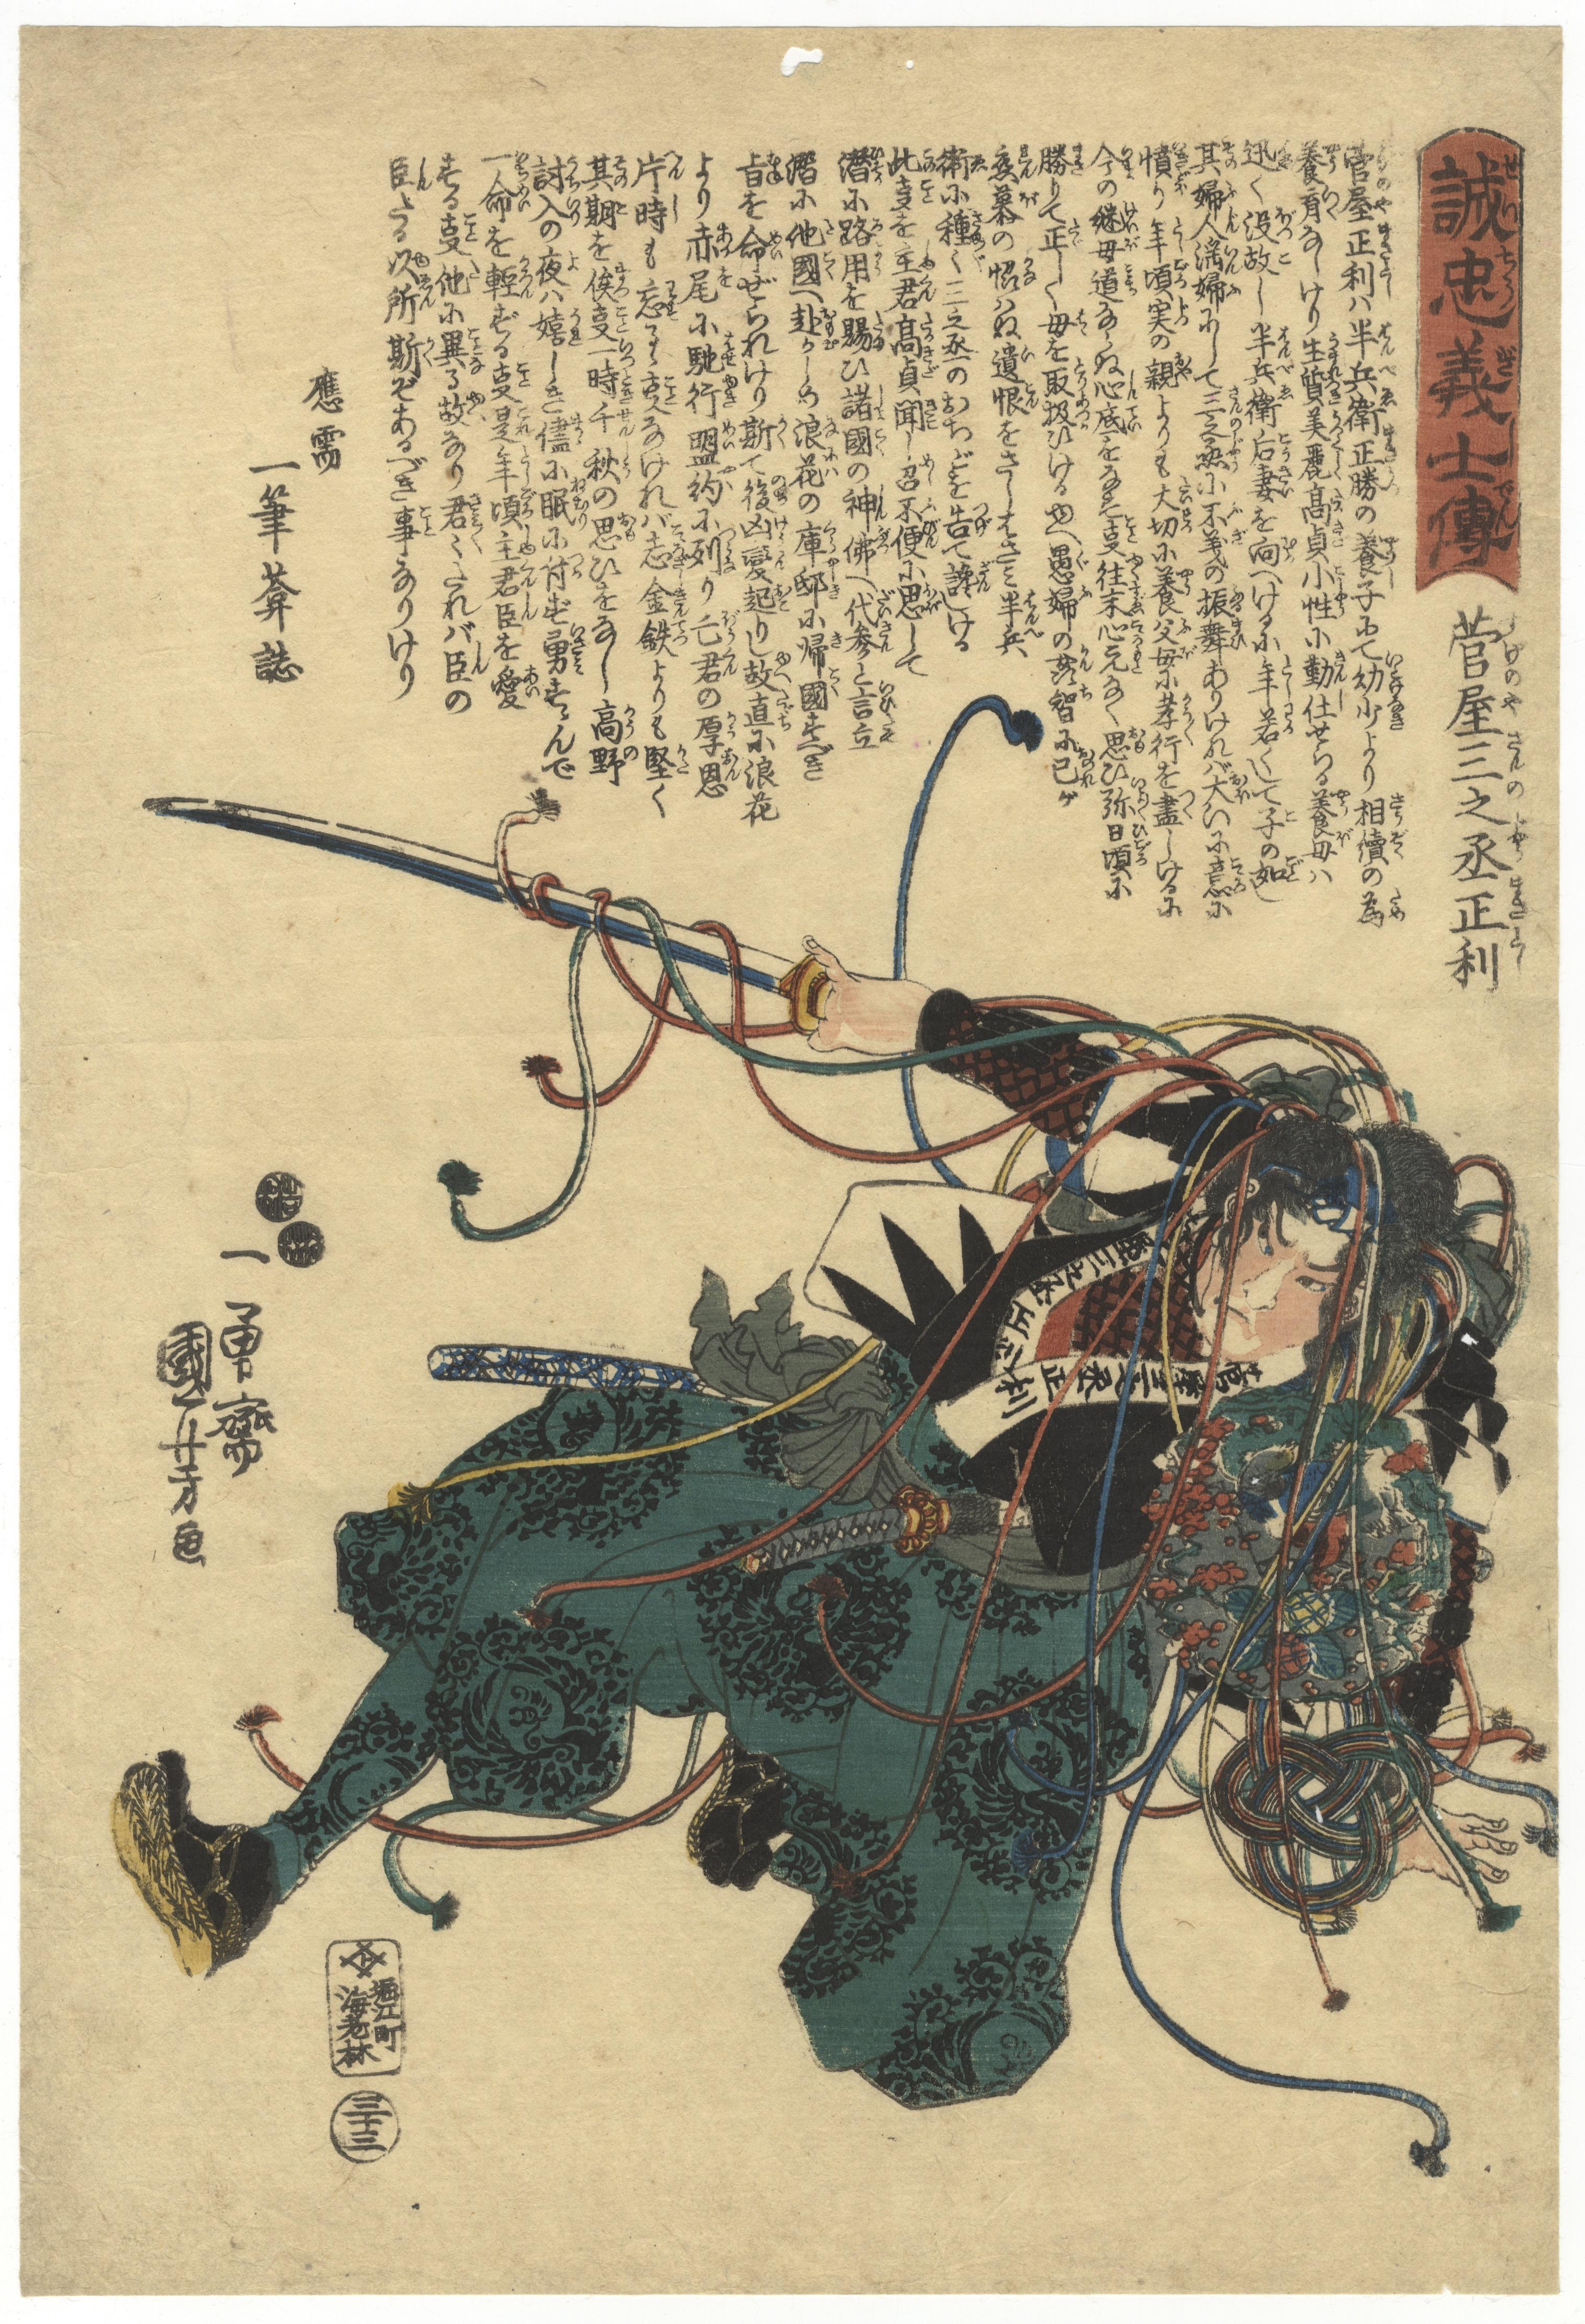 誠忠義士傳
菅屋三之丞正利
菅屋正利ハ半兵衛正勝の養子にて幼少より相續の為
養育なしけり生質美麗髙貞小性に勤仕せらる養母ハ
迅く没故し半兵衛后妻を向へけるに年若くして子の如し
其婦人淫婦にして三之丞に不義の振舞ありければ大いに意に
憤り年頃実の親よりも大切に養父母に孝行を盡しけるに
今の継母道ならぬ心底をなす事往末心元なく思ひ弥日頃に
勝りて正しく母を取扱ひけるゆへ愚婦の奸智に己が
戀慕の愜ハぬ遺恨をさしはさミ半兵
衛に種〻三之丞のおちどを告て讒しける
此事を主君髙貞聞し召不便に思して
潜に路用を賜ひ諸國の神佛へ代参と言立
潜に他國へ赴かしめ浪花の庫邸に帰國すべき
旨を命ぜられけり斯て後凶変起りし故直に浪花
より赤尾に馳行盟約に列り亡君の厚恩
片時も忘るゝ事なければ志金鉄よりも堅く
其期を俟事一時千秋の思ひをなし高野
討入の夜ハ嬉しき儘に眠に付ず勇すゝんで
一命を軽ずる事是年頃主君臣を愛
する事他に異る故なり君〻たれバ臣の
臣たる次所斯ぞあるべき事なりけり
應需
一筆菴誌
一勇齋
國芳画
菅屋三之丞正利
堀江町
海老林
三十三